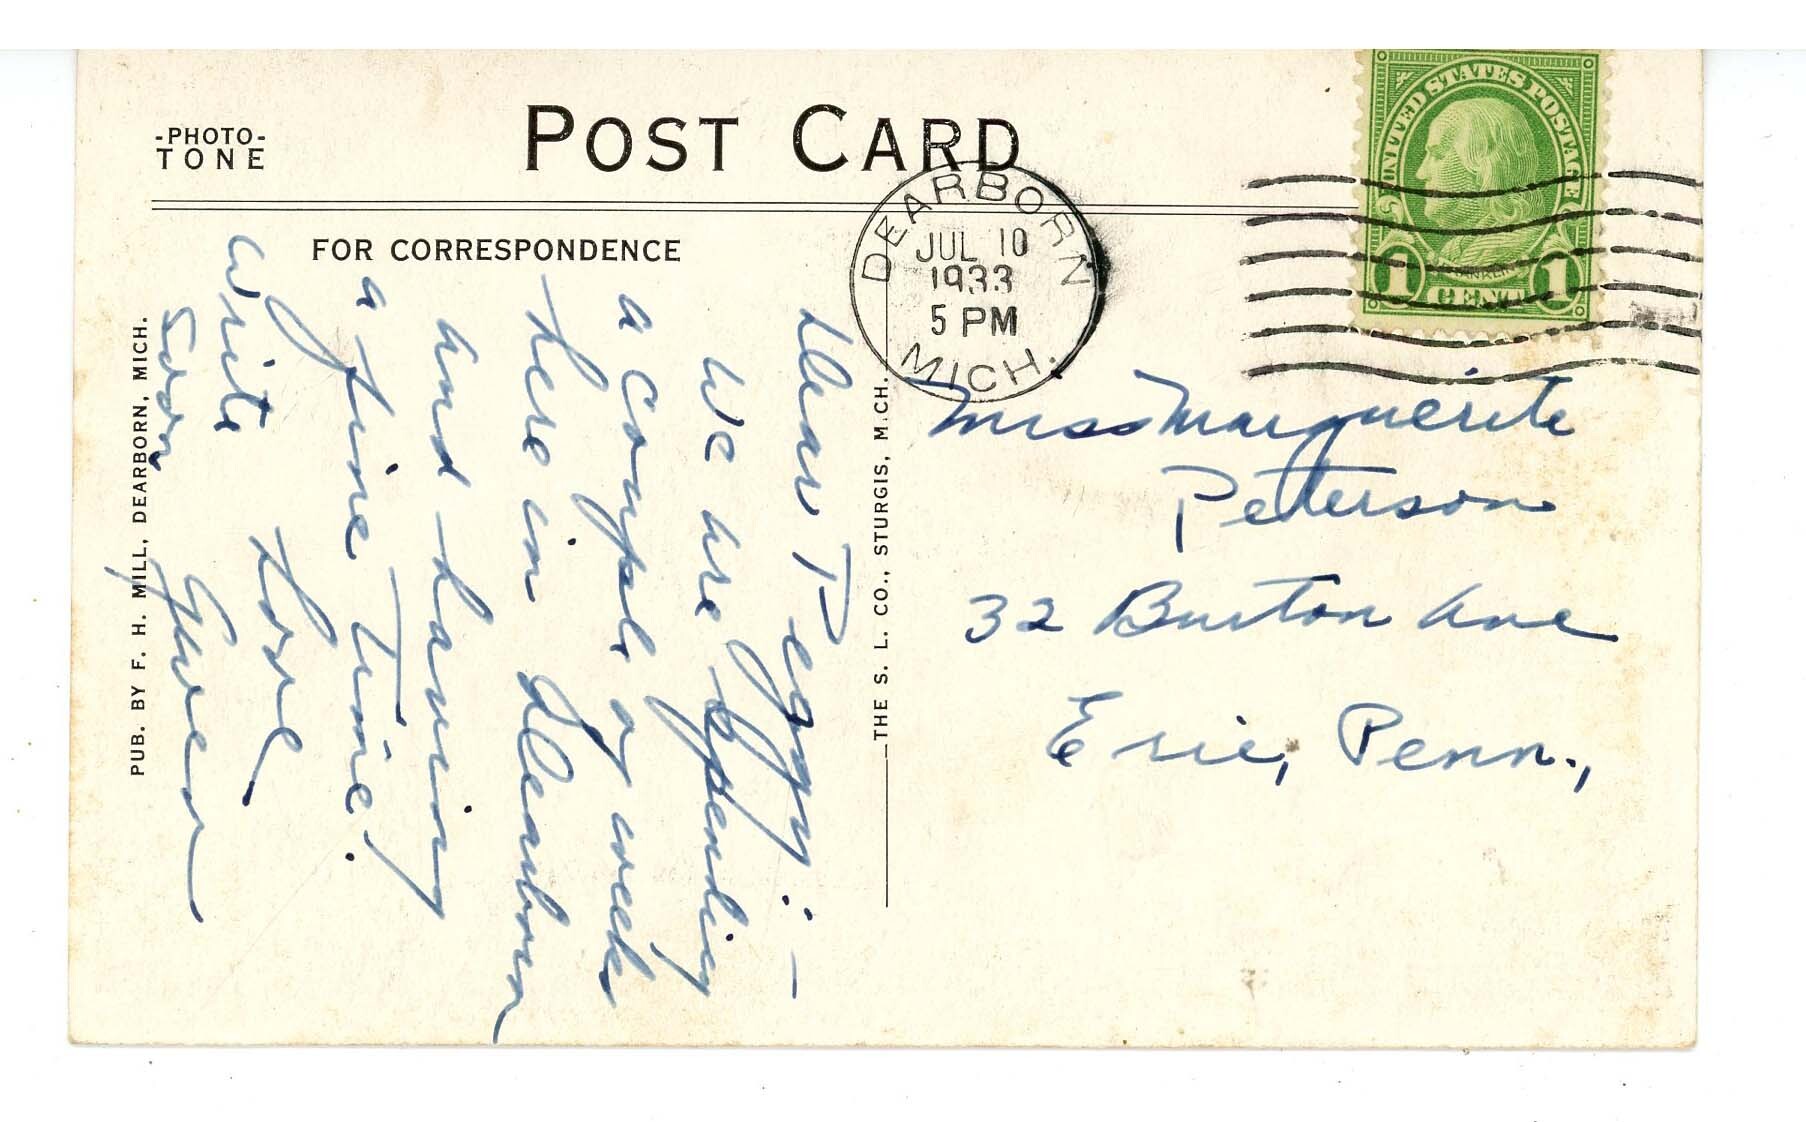 -PHOTO-
TONE
POST CARD
FOR CORRESPONDENCE
DEARBORN
JUL 10
1933
5 PM
MICH.
UNITED STATES POSTAGE
FRANKLIN
1 CENT 1
Dear Peggy:-
We are spending
a couple of weeks
here in Dearborn
and having
a fine time.
Write
soon
Love
Gwen
Miss Marguerite
Peterson
32 Burton Ave
Erie, Penn.,
PUB. BY F. H. MILL, DEARBORN, MICH.
THE S. L. CO., STURGIS, MICH.